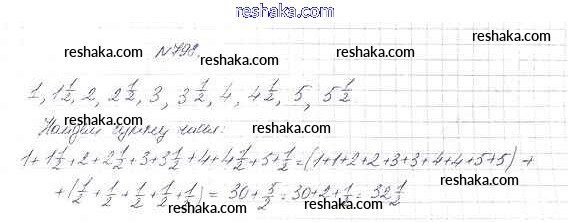 reshaka.com
№798.
1, 1 1/2, 2, 2 1/2, 3, 3 1/2, 4, 4 1/2, 5, 5 1/2
Найдем сумму чисел:
1+1 1/2+2+2 1/2+3+3 1/2+4+4 1/2+5+1/2=(1+1+2+2+3+3+4+4+5+5)+
+(1/2+1/2+1/2+1/2+1/2)=30+5/2=30+2+1/2=32 1/2
reshaka.com
reshaka.com
reshaka.com
reshaka.com
reshaka.com
reshaka.com
reshaka.com
reshaka.com
reshaka.com
reshaka.com
reshaka.com